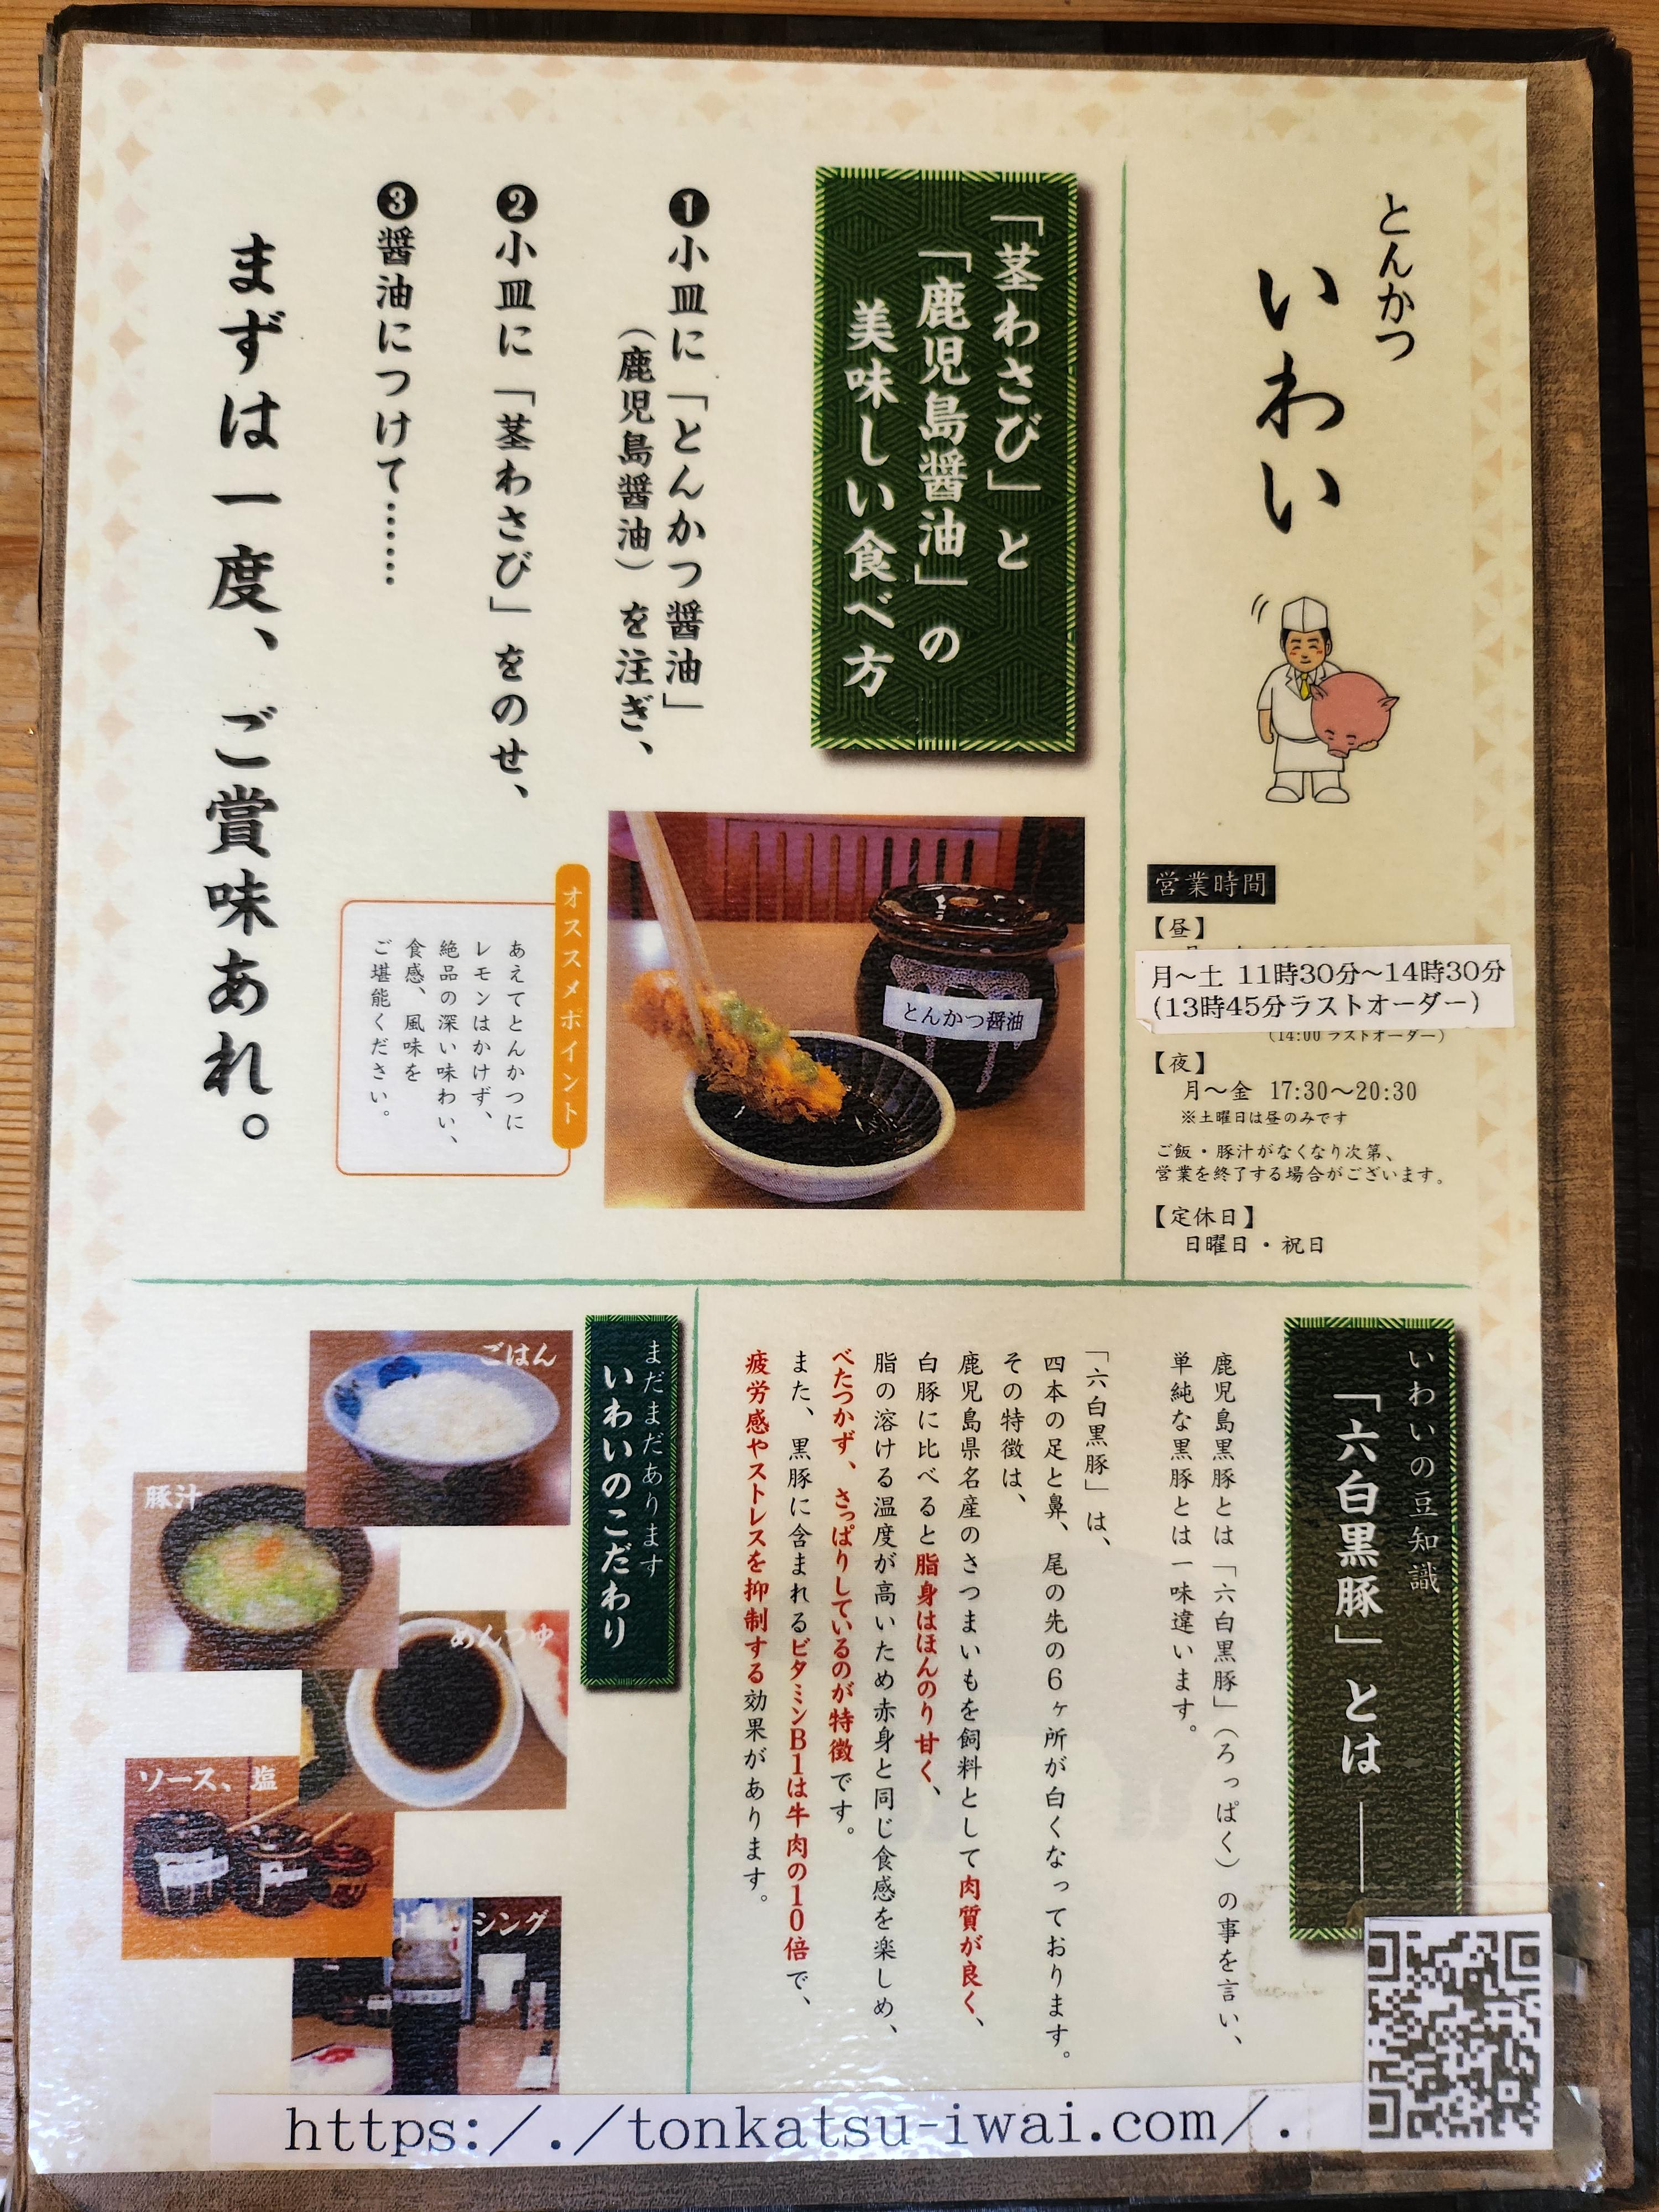 とんかつ
いわい
営業時間
【昼】
月～土 11時30分～14時30分
(13時45分ラストオーダー)
(14:00 ラストオーダー)
【夜】
月～金 17:30～20:30
※土曜日は昼のみです
ご飯・豚汁がなくなり次第、
営業を終了する場合がございます。
【定休日】
日曜日・祝日
「茎わさび」と
「鹿児島醤油」の
美味しい食べ方
❶小皿に「とんかつ醤油」
(鹿児島醤油)を注ぎ、
❷小皿に「茎わさび」をのせ、
❸醤油につけて……
まずは一度、ご賞味あれ。
とんかつ醤油
オススメポイント
あえてとんかつに
レモンはかけず、
絶品の深い味わい、
食感、風味を
ご堪能ください。
いわいの豆知識
「六白黒豚」とは――
鹿児島黒豚とは「六白黒豚」(ろっぱく)の事を言い、
単純な黒豚とは一味違います。
「六白黒豚」は、
四本の足と鼻、尾の先の6ヶ所が白くなっております。
その特徴は、
鹿児島県名産のさつまいもを飼料として肉質が良く、
白豚に比べると脂身はほんのり甘く、
脂の溶ける温度が高いため赤身と同じ食感を楽しめ、
べたつかず、さっぱりしているのが特徴です。
また、黒豚に含まれるビタミンB1は牛肉の10倍で、
疲労感やストレスを抑制する効果があります。
まだまだあります
いわいのこだわり
ごはん
豚汁
めんつゆ
ソース、塩
シング
https:/./tonkatsu-iwai.com/.